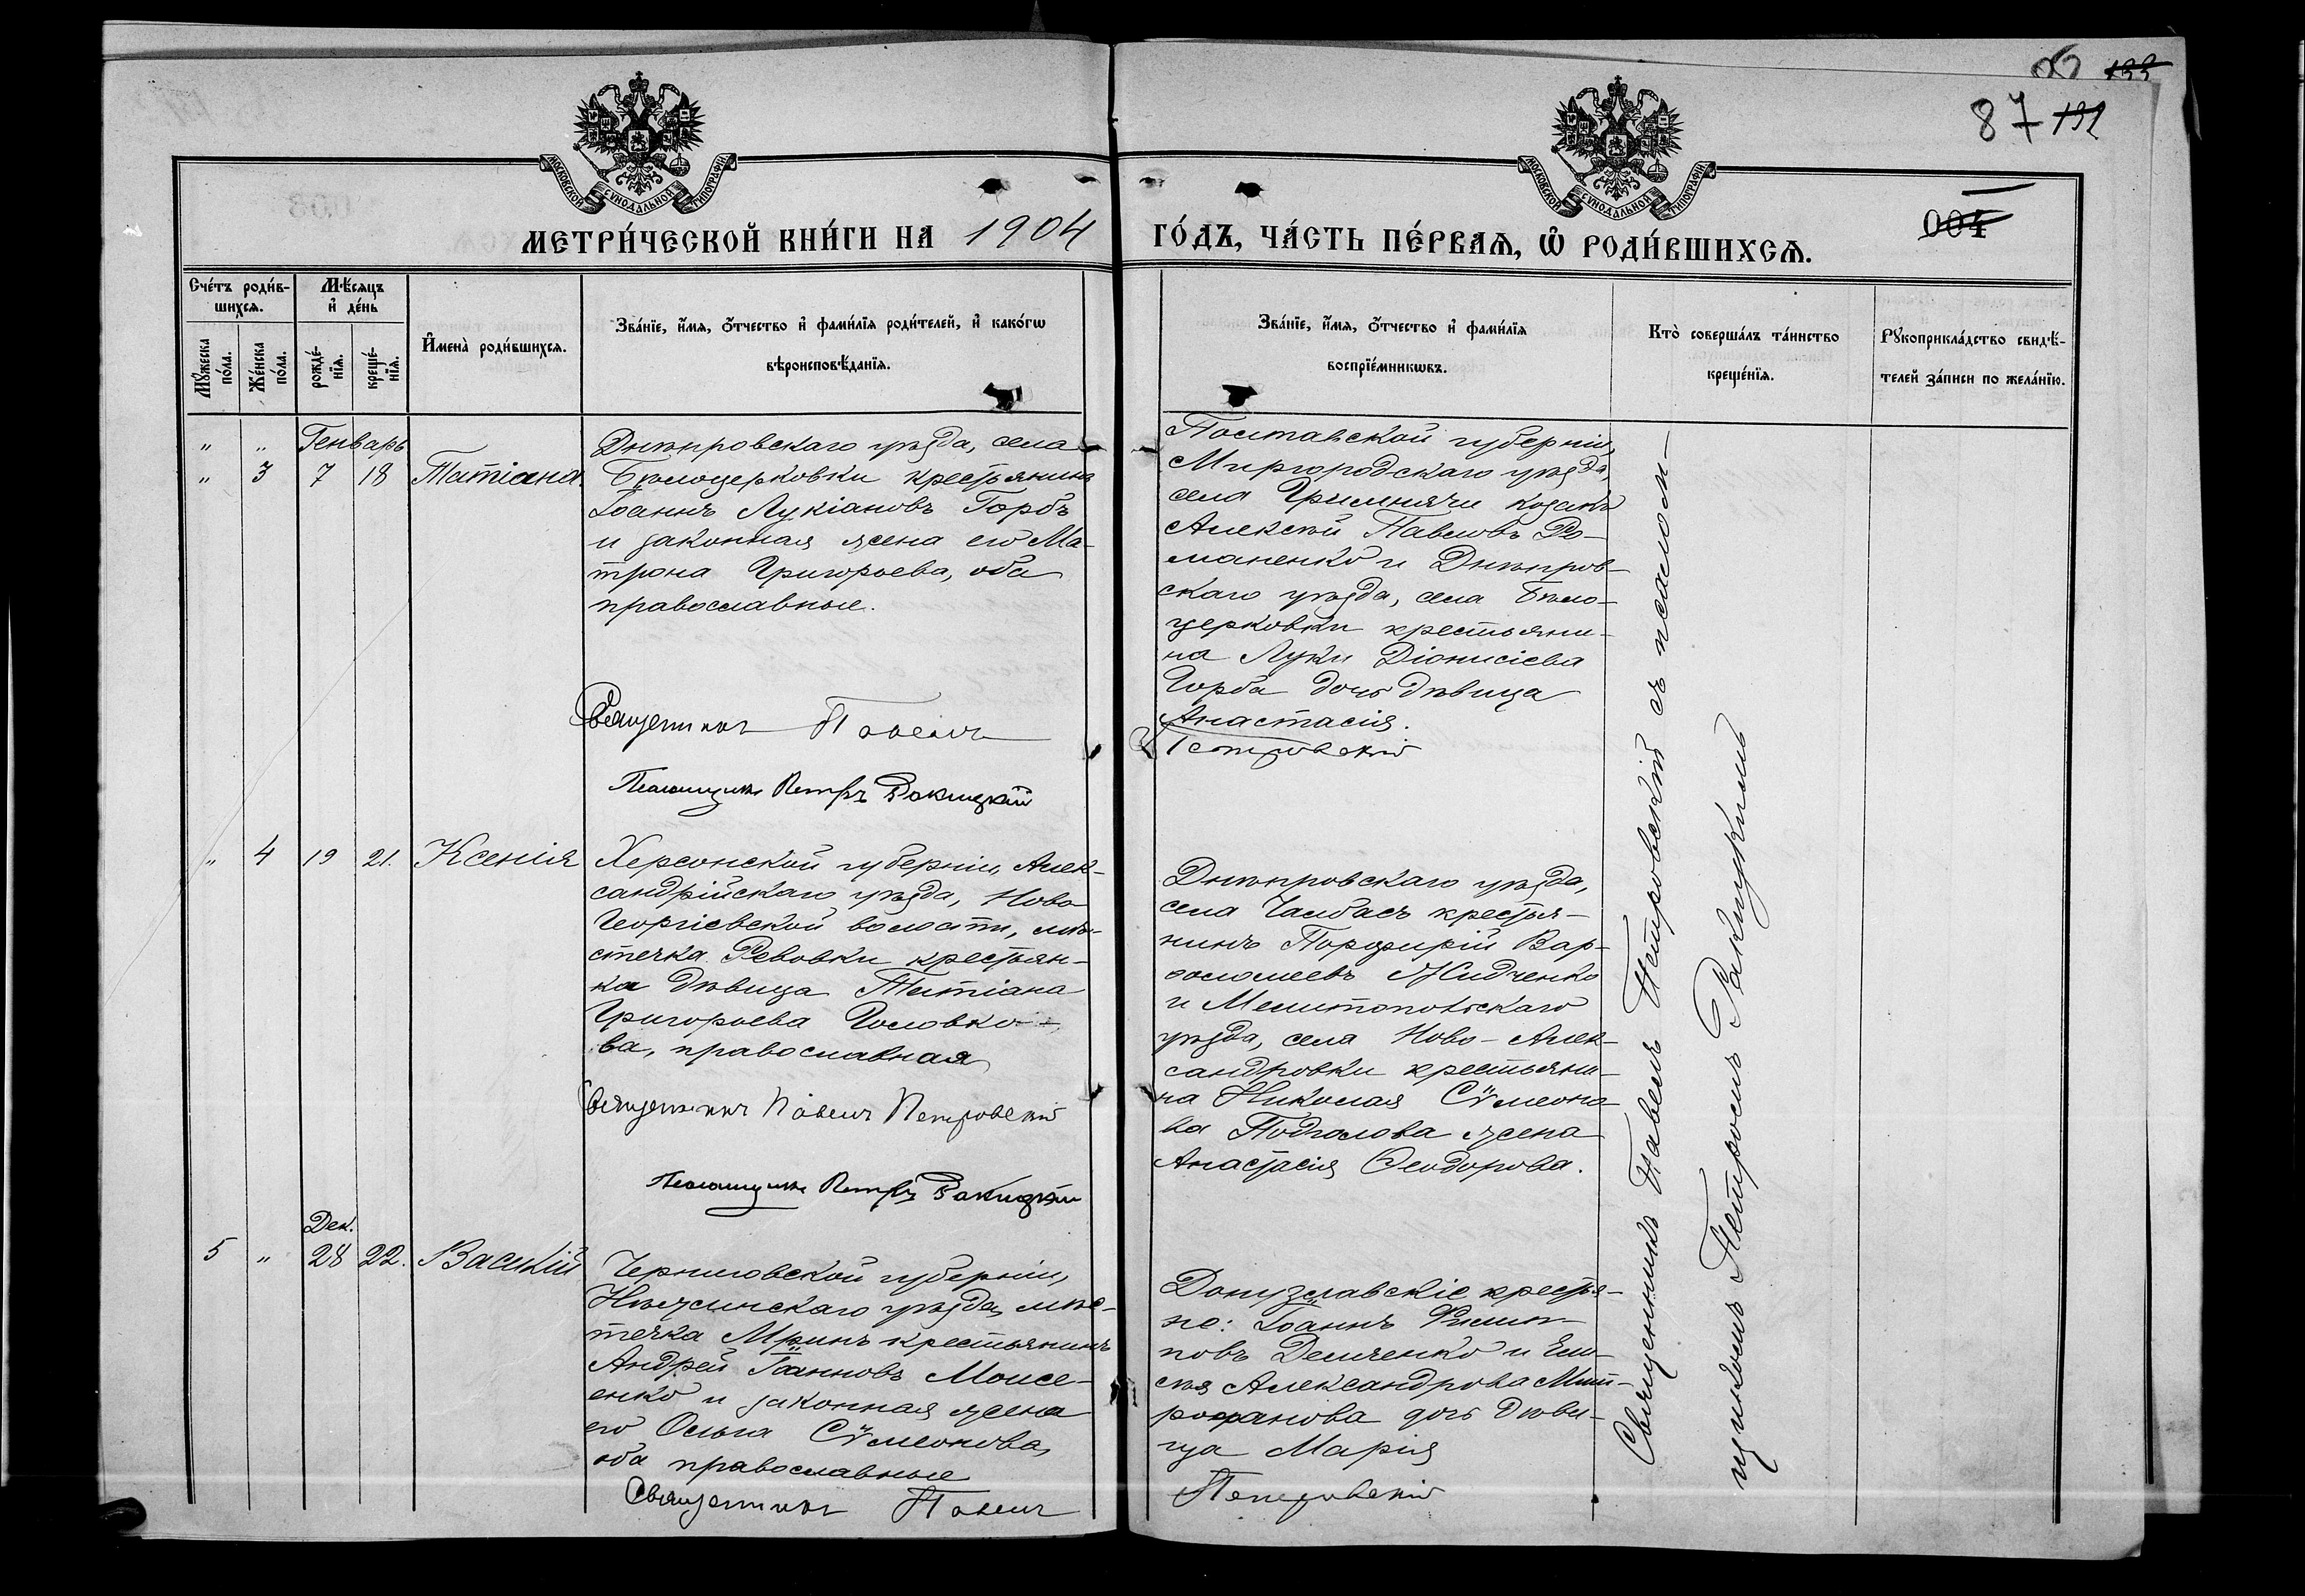 133
87 132
МОСКОВСКОЙ СѴНОДАЛЬНОЙ ТИПОГРАФІИ
МОСКОВСКОЙ СѴНОДАЛЬНОЙ ТИПОГРАФІИ
004
МЕТРИ́ЧЕСКОЙ КНИ́ГИ НА 1904
ГО́ДЪ, ЧА́СТЬ ПЕ́РВАѦ, Ѿ РОДИ́ВШИХСѦ.
Сче́тъ роди́в-
шихсѧ.
Мꙋ́жеска по́ла.
Же́нска по́ла.
Мѣ́сѧцъ
и҆ де́нь
рожде́-
нїѧ.
креще́-
нїѧ.
И҆мена̀ роди́вшихсѧ.
Зва́нїе, и҆́мѧ, ѻ҆́тчество и҆ фами́лїѧ роди́телей, и҆ како́гѡ
вѣроисповѣ́данїѧ.
Зва́нїе, и҆́мѧ, ѻ҆́тчество и҆ фами́лїѧ
воспрїе́мникѡвъ.
Кто̀ соверша́лъ та́инство
креще́нїѧ.
Рꙋкоприкла́дство свидѣ́-
телей за́писи по жела́нїю.
" " Генварь
" 3 7 18 Татіана.
Днѣпровскаго уѣзда, села
Бѣлоцерковки крестьянинъ
Іоаннъ Лукіановъ Горбъ
и законная жена его Ма-
трона Григорьева, оба
православные.
Священникъ Павелъ
Псаломщикъ Петръ Ракицкій
Полтавской губерніи,
Миргородскаго уѣзда,
села козакъ
Алексѣй Павловъ Ро-
маненко и Днѣпров-
скаго уѣзда, села Бѣло-
церковки крестьяни-
на Луки Діонисіева
Горба дочь дѣвица
Анастасія.
Петровскій
" 4 19 21. Ксенія
Херсонской губерніи, Алек-
сандрійскаго уѣзда, Ново
Георгіевской волости, мѣ-
стечка Ревовки крестьян-
ка дѣвица Татіана
Григорьева Головко-
ва, православная
Священникъ Павелъ Петровскій
Псаломщикъ Петръ Ракицкій
Днѣпровскаго уѣзда,
села Чалбасъ крестья-
нинъ Порфирій Вар-
ѳоломеевъ Жидченко
и Мелитопольскаго
уѣзда, села Ново-Алек-
сандровки крестьяни-
на Николая Сѵмеоно-
ва жена
Анастасія Ѳеодорова.
Дек.
5 " 28 22. Василій
Черниговской губерніи,
Нѣжинскаго уѣзда, мѣс-
течка Мринъ крестьянинъ
Андрей Іоанновъ Моисе-
енко и законная жена
его Ольга Сѵмеонова,
оба православные
Священникъ Павелъ
Донузлавскіе крестья-
не: Іоаннъ Филип-
повъ Демченко и Ели-
сея Александрова Мит-
рофанова дочь дѣви-
ца Марія
Петровскій
Священникъ Павелъ Петровскій съ псалом-
щикомъ Петромъ Ракицкимъ